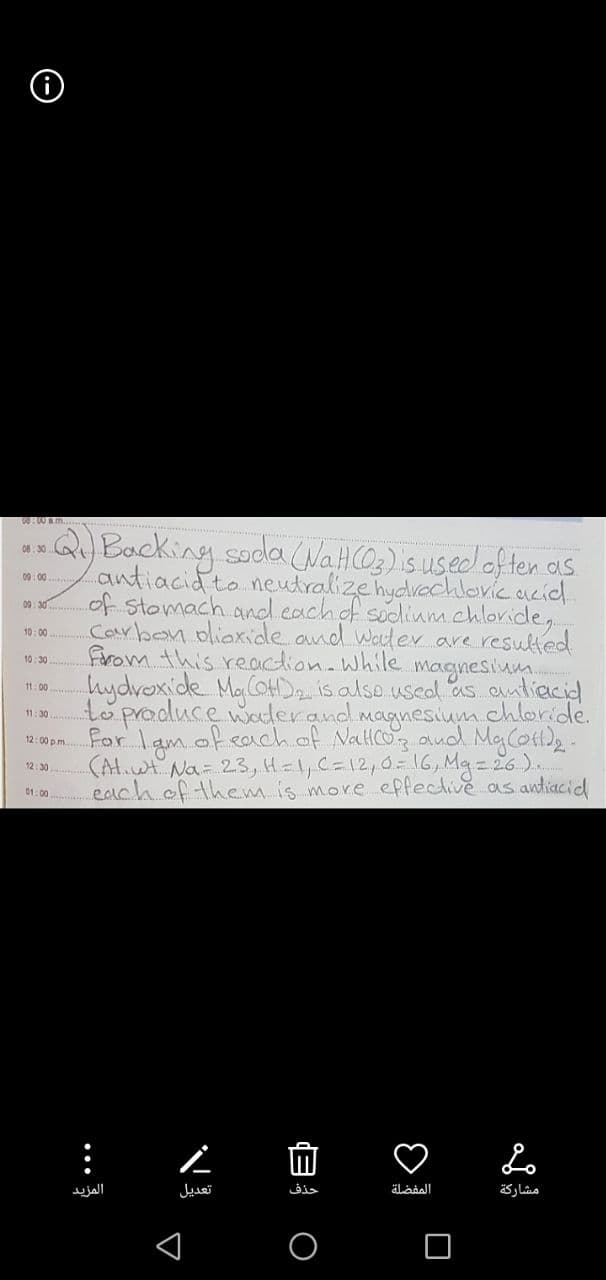 08:00 a.m.
08:30 Q1) Backing soda (NaHCO3) is used often as
09:00 antiacid to neutralize hydrochloric acid
09:30 of stomach and each of sodium chloride,
10:00 Carbon dioxide and water are resulted
10:30 From this reaction. While magnesium
11:00 hydroxide Mg(OH)2 is also used as antiacid
11:30 to produce water and magnesium chloride.
12:00 p.m. For 1gm of each of NaHCO3 and Mg(OH)2.
12:30 (At.wt Na=23, H=1, C=12, O=16, Mg=26).
01:00 each of them is more effective as antiacid
المزيد تعديل حذف المفضلة مشاركة